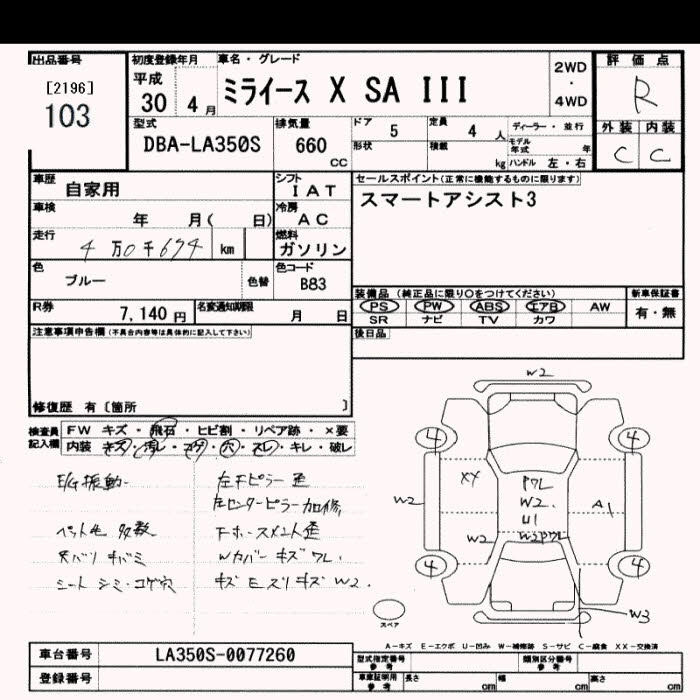 出品番号
[2196]
103
初度登録年月
平成
30 4月
車名・グレード
ミライース X SA III
2WD
・
4WD
評価点
R
外装 内装
C C
型式
DBA-LA350S
排気量
660
cc
ドア
5
定員
4 人
形状
積載
kg
ディーラー・並行
モデル年式
年
ハンドル 左・右
車歴
自家用
シフト
IAT
車検
年 月( 日)
冷房
AC
走行
4万0千694 km
燃料
ガソリン
色
ブルー
色替
色コード
B83
R券
7,140円
名変通知期限
月 日
セールスポイント(正常に機能するものに限ります)
スマートアシスト3
装備品(純正品に限り○をつけてください)
PS PW ABS エアB AW
SR ナビ TV カワ
新車保証書
有・無
後日品
注意事項申告欄(不具合内容等は具体的に記入して下さい)
修復歴 有〔箇所 〕
検査員
記入欄
FW キズ・飛石・ヒビ割・リペア跡・×要
内装 キズ・汚レ・コゲ・穴・スレ・キレ・破レ
E/G振動
ペット毛 多数
天バリ キバミ
シート シミ・コゲ穴
左Fピラー歪
左センターピラー加修
Fホースメント歪
Wカバー キズ ワレ.
キズ E スリキズ W2.
W2
4
4
XX
ワレ
W2.
U1
A1
W2
W2
W3ワレ
4
4
W3
スペア
A-キズ E-エクボ U-凹み W-補修跡 S-サビ C-腐食 XX-交換済
車台番号
LA350S-0077260
登録番号
型式指定番号
参考
類別区分番号
参考
車庫証明用
参考
長さ
cm
幅
cm
高さ
cm